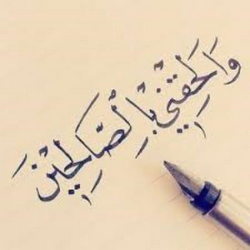 وَأَلْحِقْنِي بِالصَّالِحِينَ